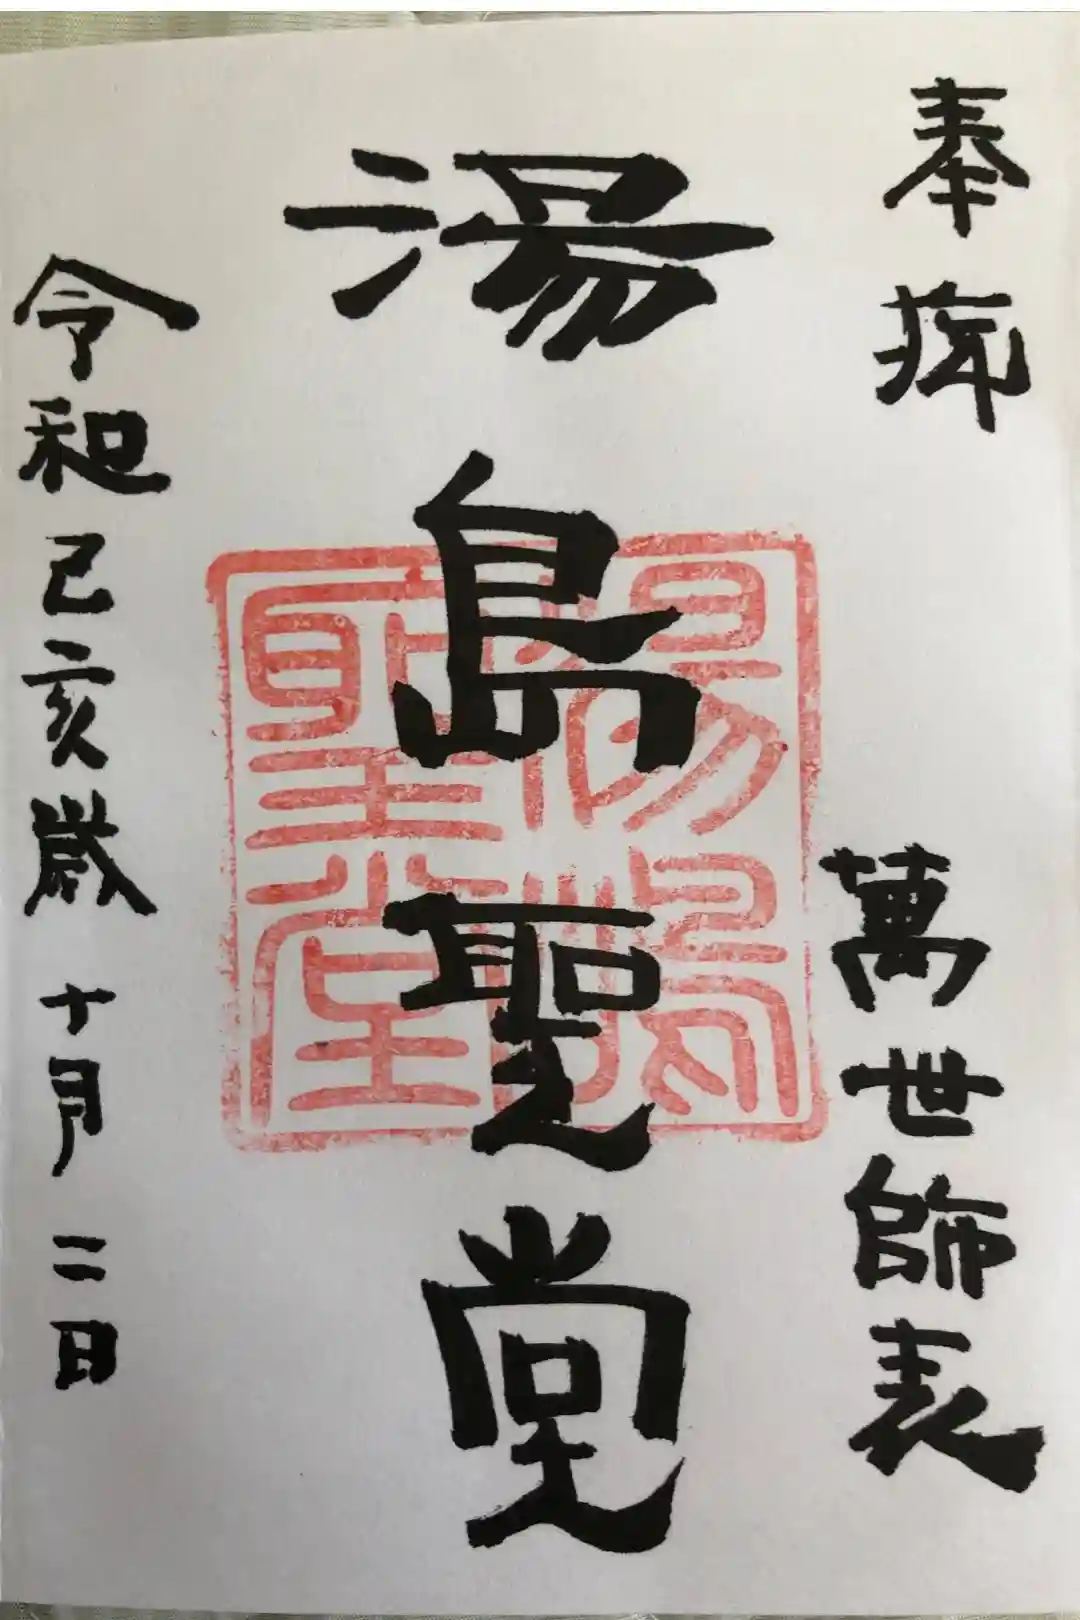 奉拝
萬世師表
湯島聖堂
湯島聖堂
令和己亥歳十月二日